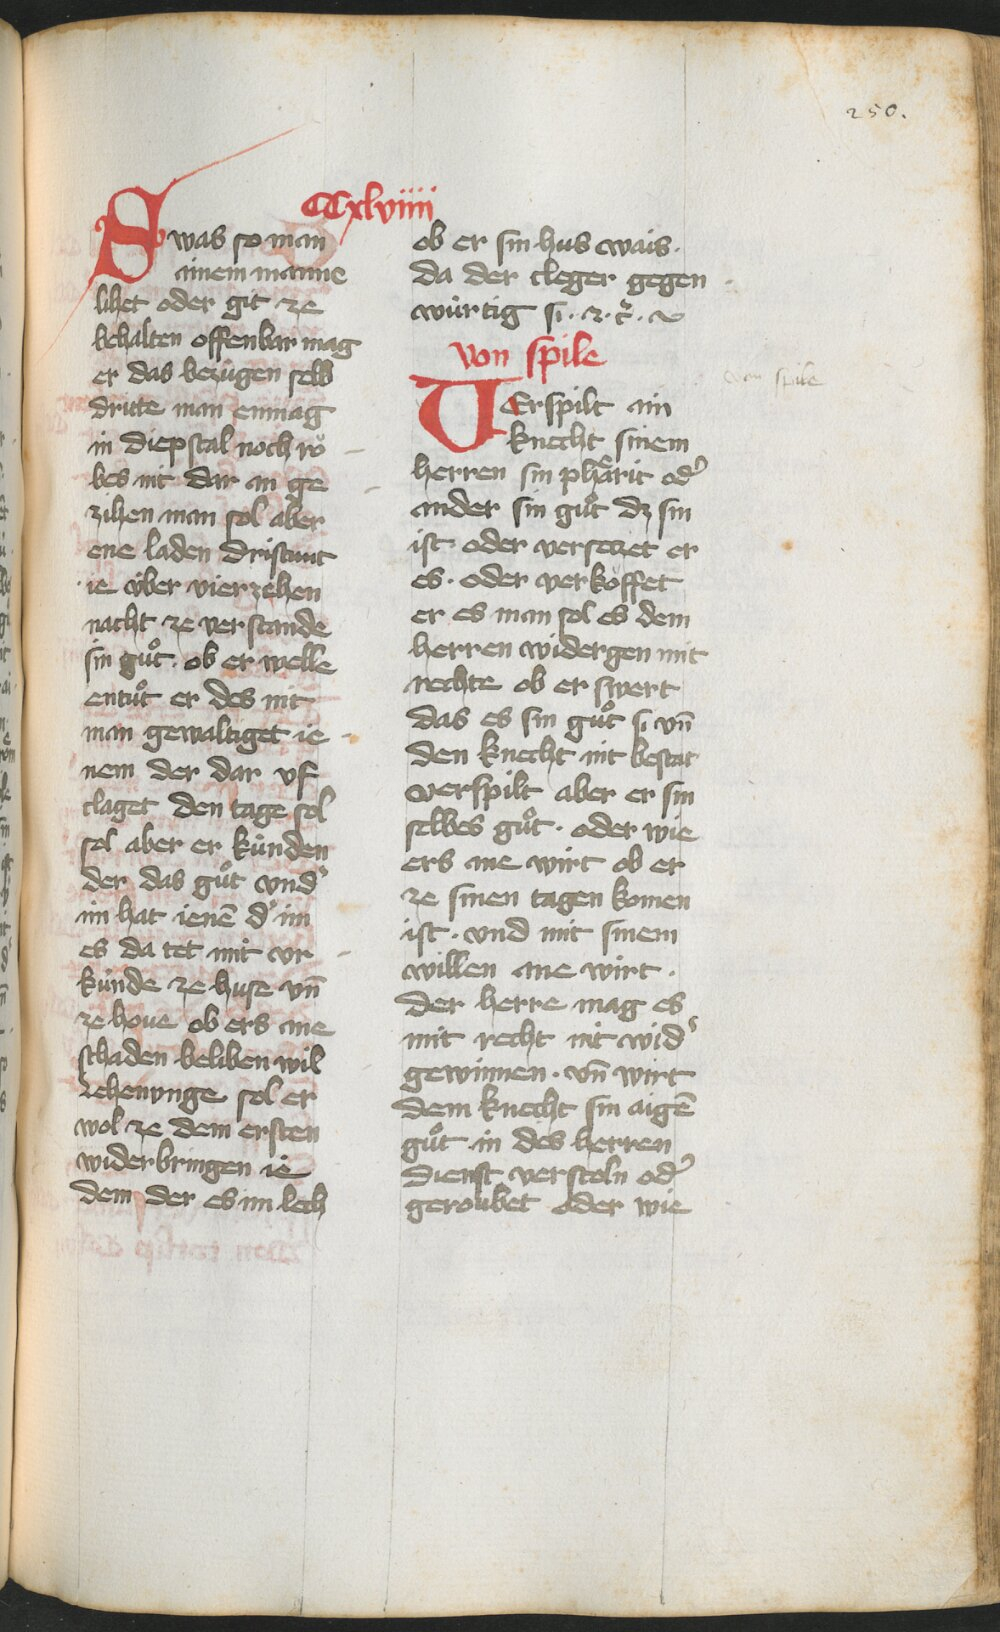 250.
CCxlviiii
Swas so man
ainem manne
lihet oder git ze
behalten offenbar mag
er das bezùgen selb
dritte man enmag
in diepstal noch rö
bes nit dar an ge
zihen man sol aber
ene laden dristunt
ie über vierzehen
nacht ze verstande
sin guͦt. ob er welle
entuͦt er des nit
man gewaltiget ie
nem der dar vf
claget den tage sol
sol aber er kùnden
der das guͦt vnd᾽
im hat ienē d᾽ im
es da tet mit vr
kùnde ze huse vn̄
ze houe ob ers ane
schaden beliben wil
zehenunge sol er
wol ze dem ersten
widerbringen ie
dem der es im lech
ob er sin hus wais.
da der cleger gegen
wùrtig si. 
von spile
von spile
VErspilt ain
knecht sinem
herren sin phärit od᾽
ander sin guͦt dz sin
ist oder versetzet er
es. oder verköffet
er es man sol es dem
herren widergen mit
rechte ob er swert
das es sin guͦt si vn̄
den knecht nit bestat
verspilt aber er sin
selbes guͦt. oder wie
ers ane wirt ob er
ze sinen tagen komen
ist. vnd mit sinem
willen ane wirt.
der herre mag es
mit recht nit wid᾽
gewinnen. vn̄ wirt
dem knecht sin aigē
guͦt in des herren
dienst verstoln od᾽
geroubet oder wie